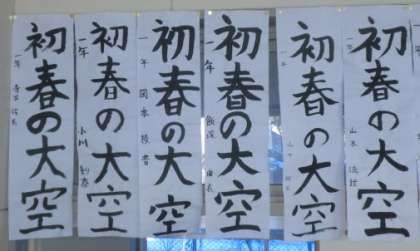 初春の大空
一年
初春の大空
一年
小川
初春の大空
一年
初春の大空
一年
初春の大空
一年
山下
初春の大空
一年
山本